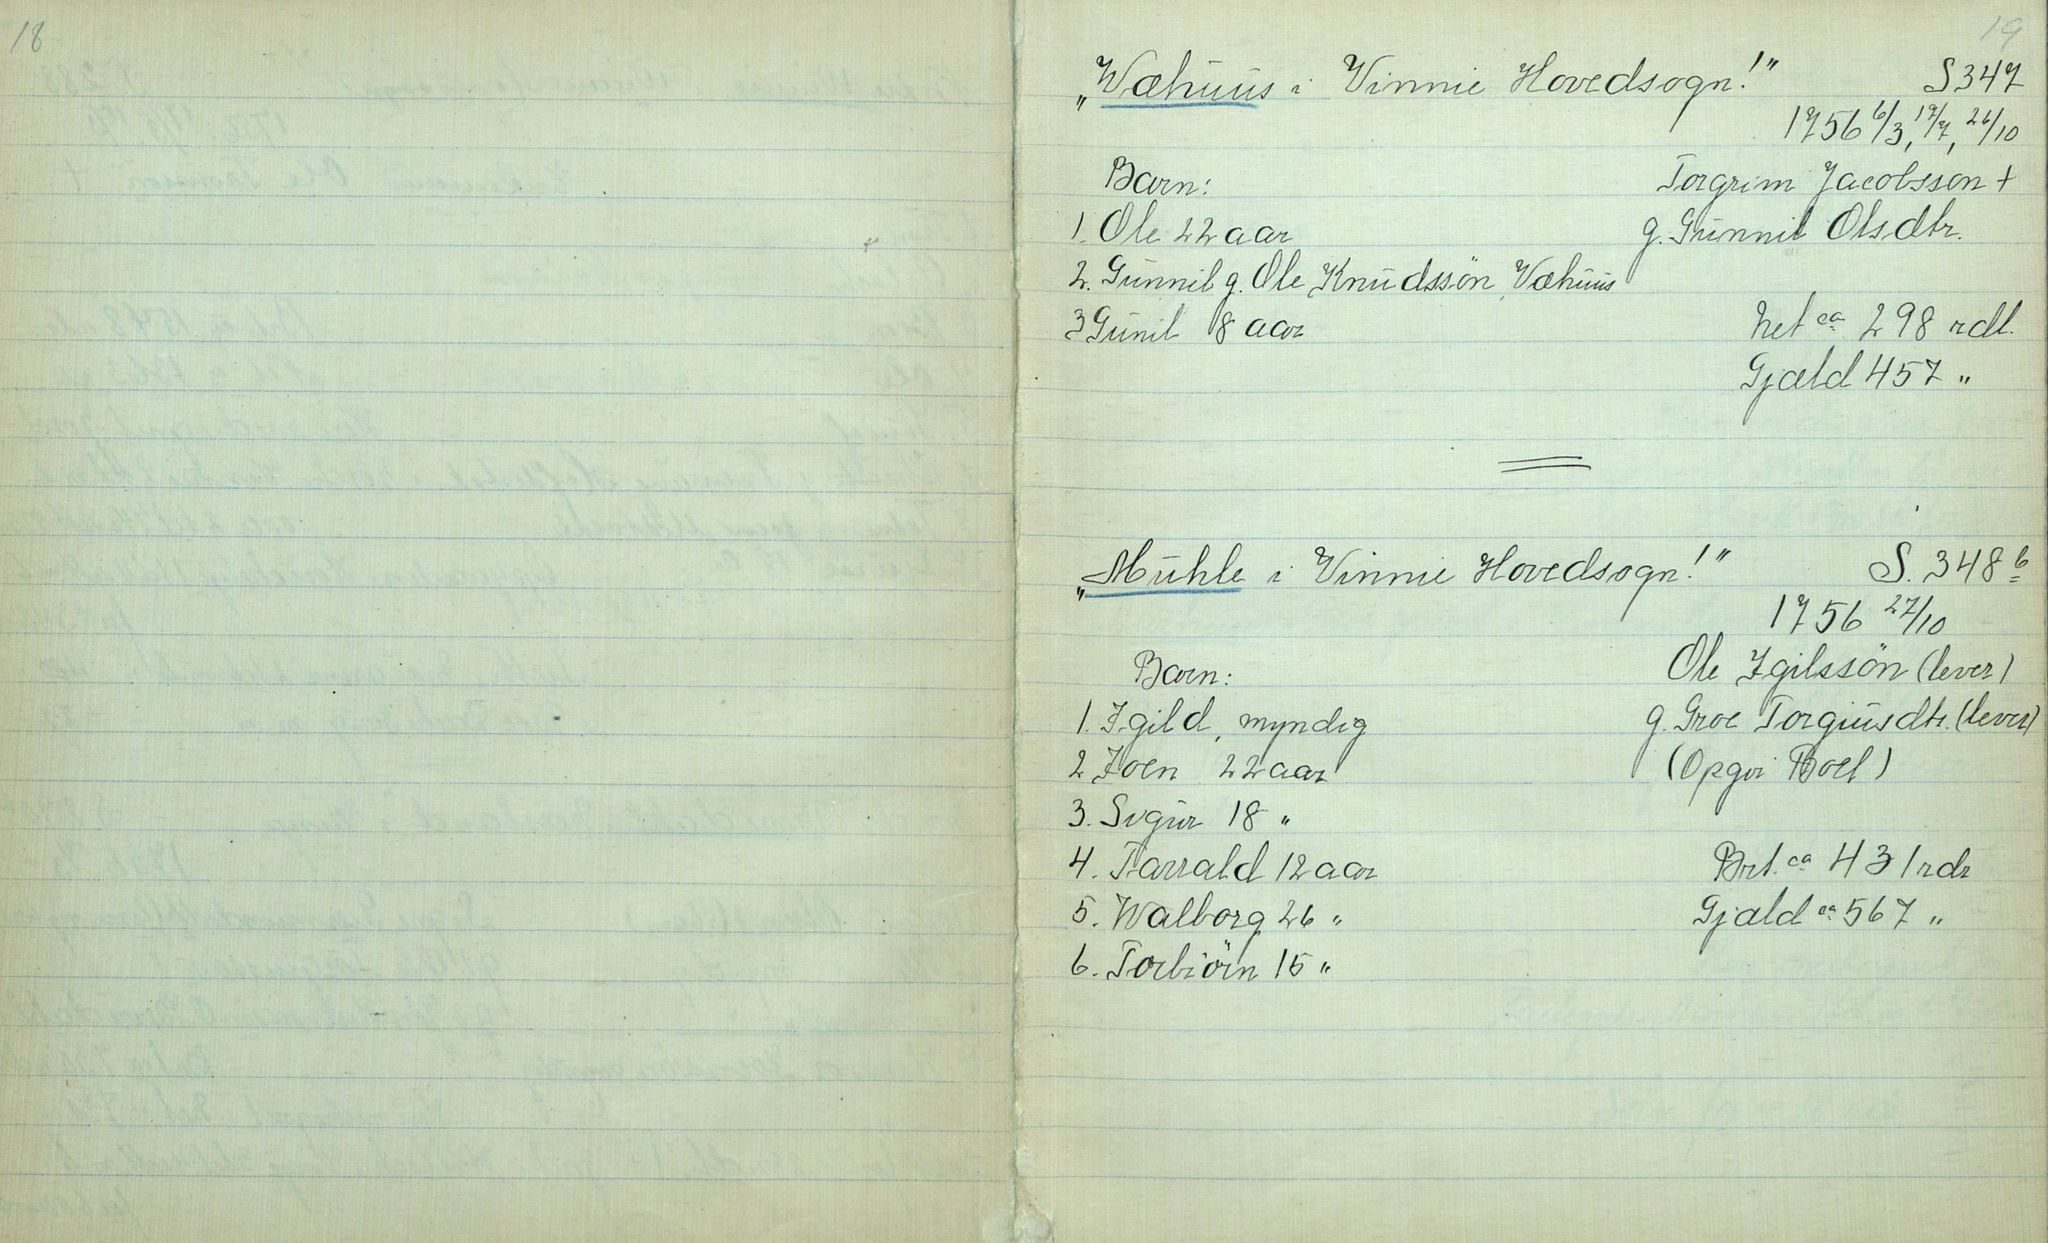 18
19
"Wæhuus i Vinnie Hovedsogn!" S 347
1756 6/3, 17/7, 26/10
Barn: Torgrim Jacobsson +
1. Ole 22 aar g. Gunnil Olsdtr.
2. Gunnil g. Ole Knudssön Væhuus
3 Gunil 8 aar Net ca 298 rdl.
Gjæld 457 "
"Muhle i Vinnie Hovedsogn!" S. 348 b
1756 27/10
Barn: Ole Igilssön (lever)
1. Igild, myndig g. Groe Torgiusdtr. (lever)
2 Joen 22 aar (Opgir Boet)
3. Svgur 18 "
4. Tarrald 12 aar Brt. ca 431 rdr
5. Walborg 26 " Gjæld ca 567 "
6. Torbiörn 15 "